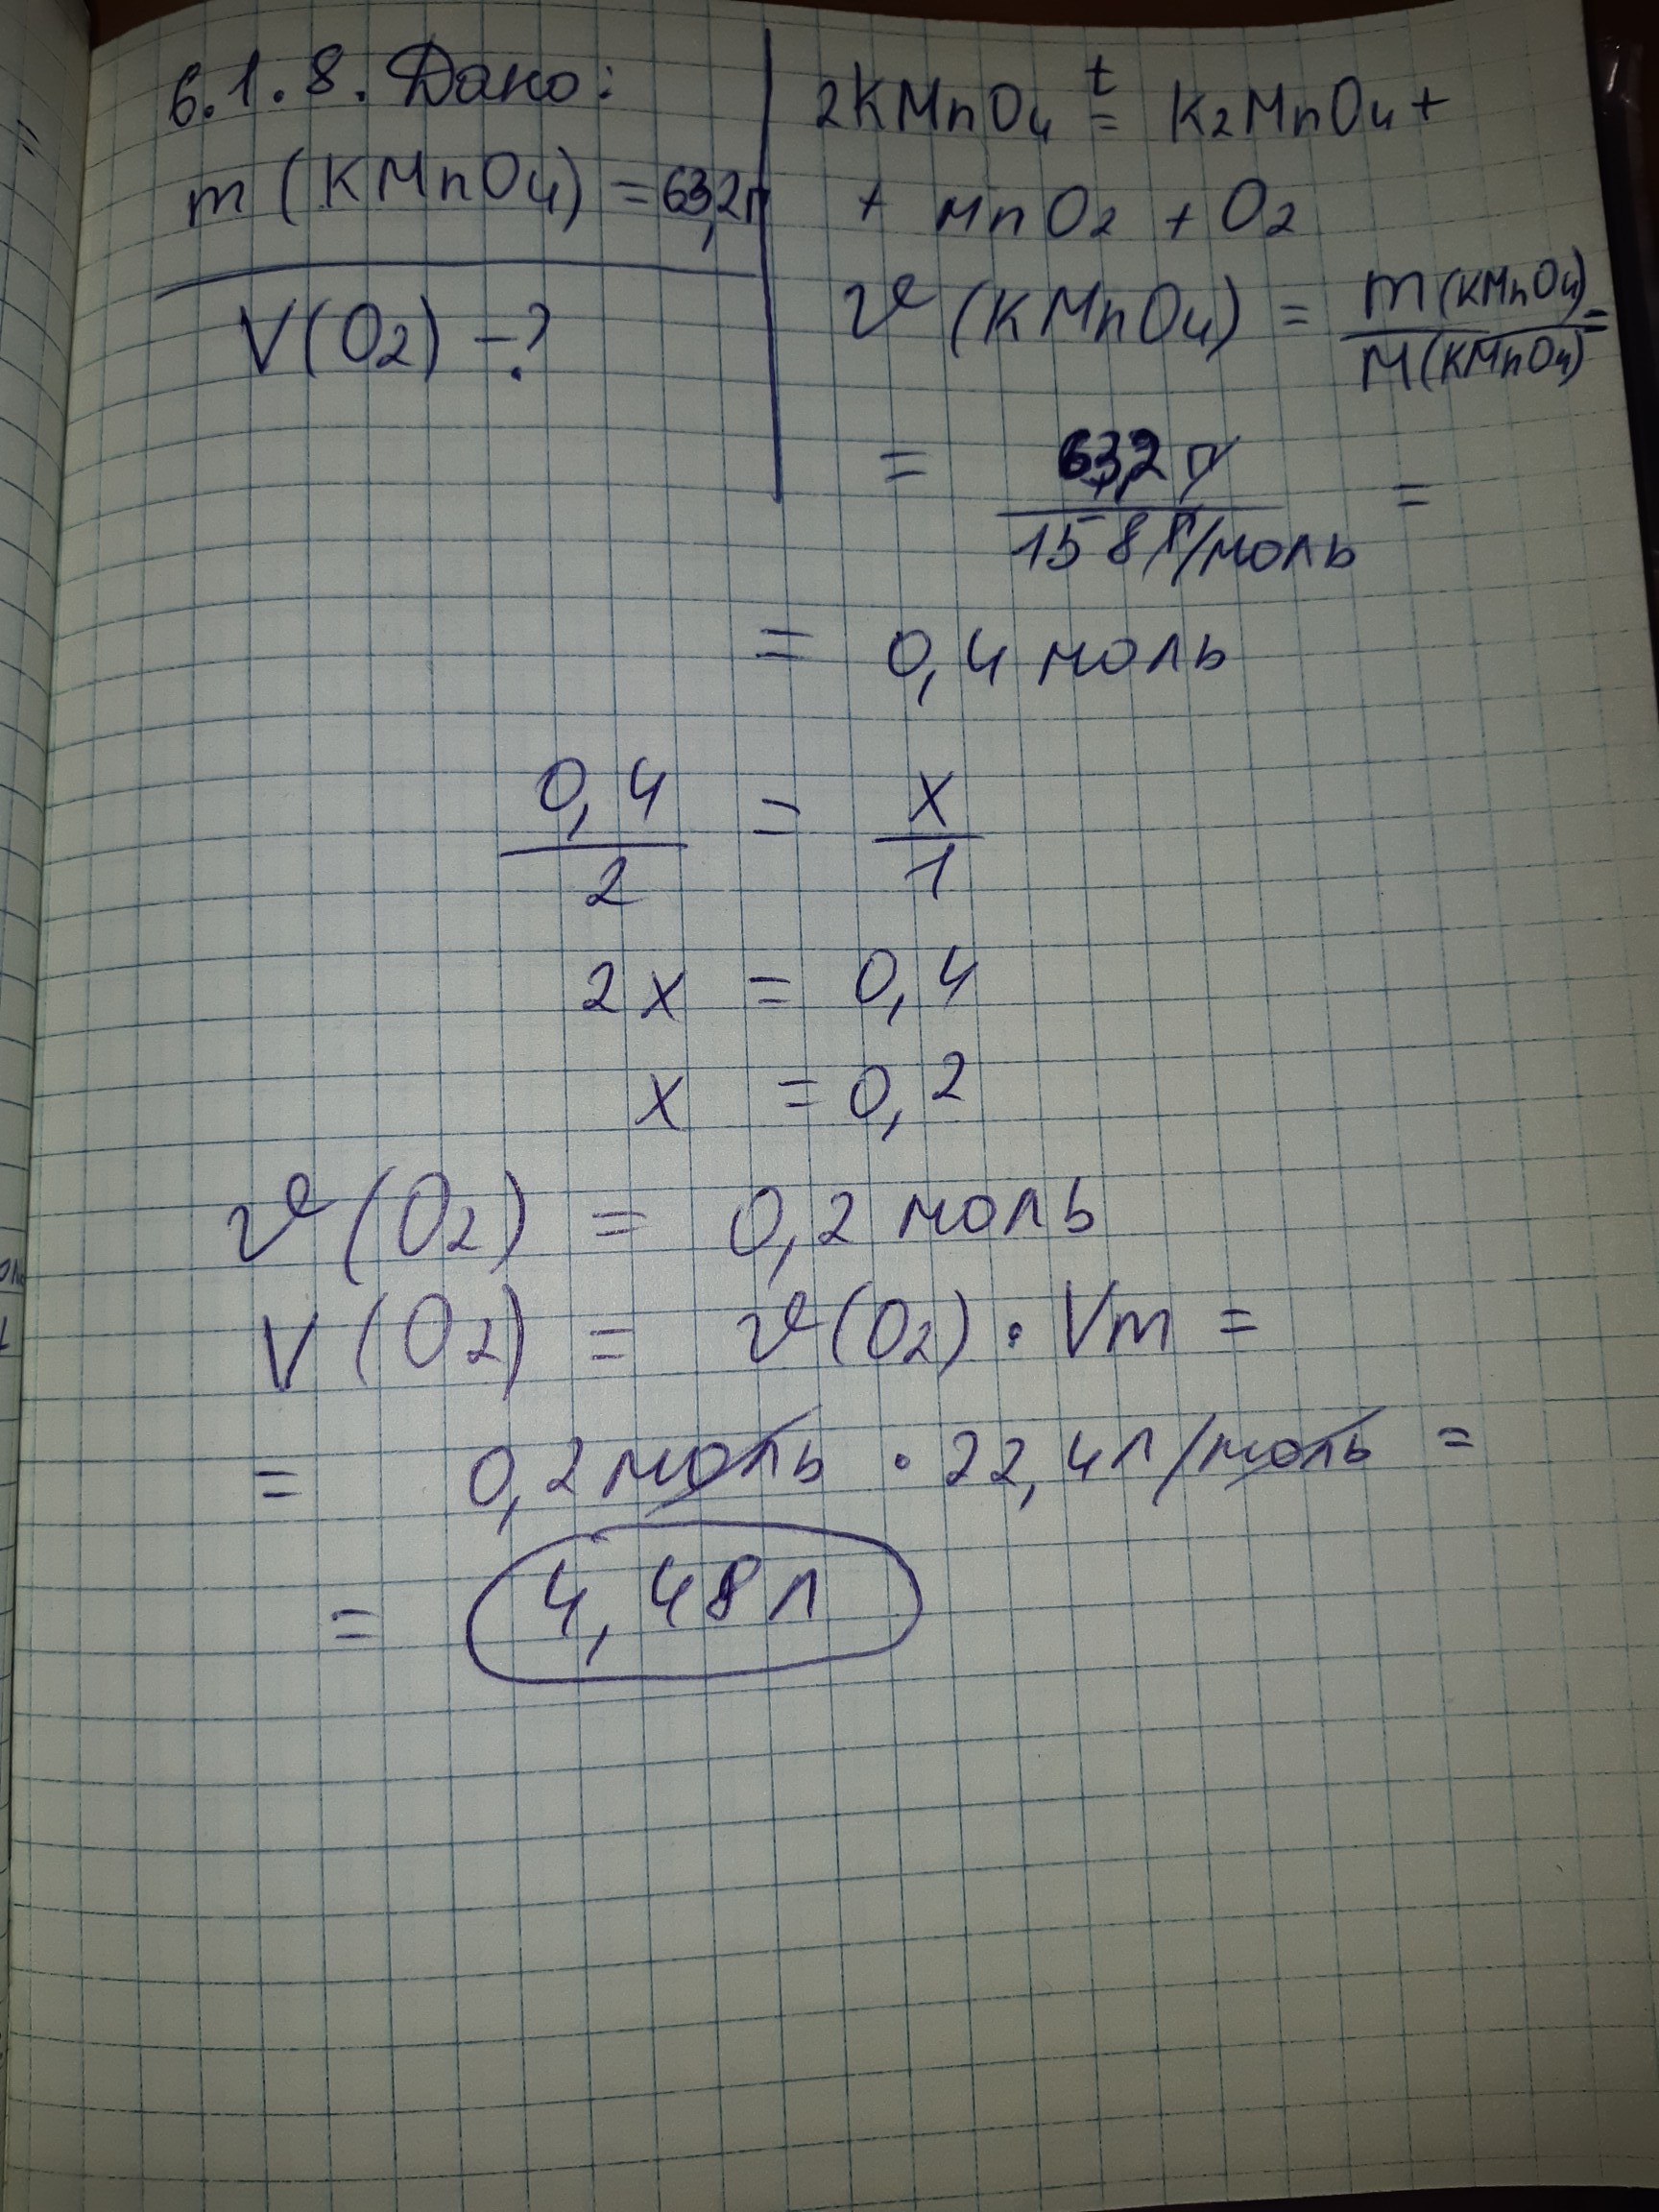 6.1.8. Дано:
m (KMnO4) = 63,2г
V(O2) - ?
2KMnO4 t= K2MnO4 +
+ MnO2 + O2
ν (KMnO4) = m(KMnO4) / M(KMnO4) =
= 63,2 г / 158 г/моль =
= 0,4 моль
0,4 / 2 = x / 1
2x = 0,4
x = 0,2
ν (O2) = 0,2 моль
V (O2) = ν(O2) · Vm =
= 0,2 моль · 22,4л/моль =
= 4,48л